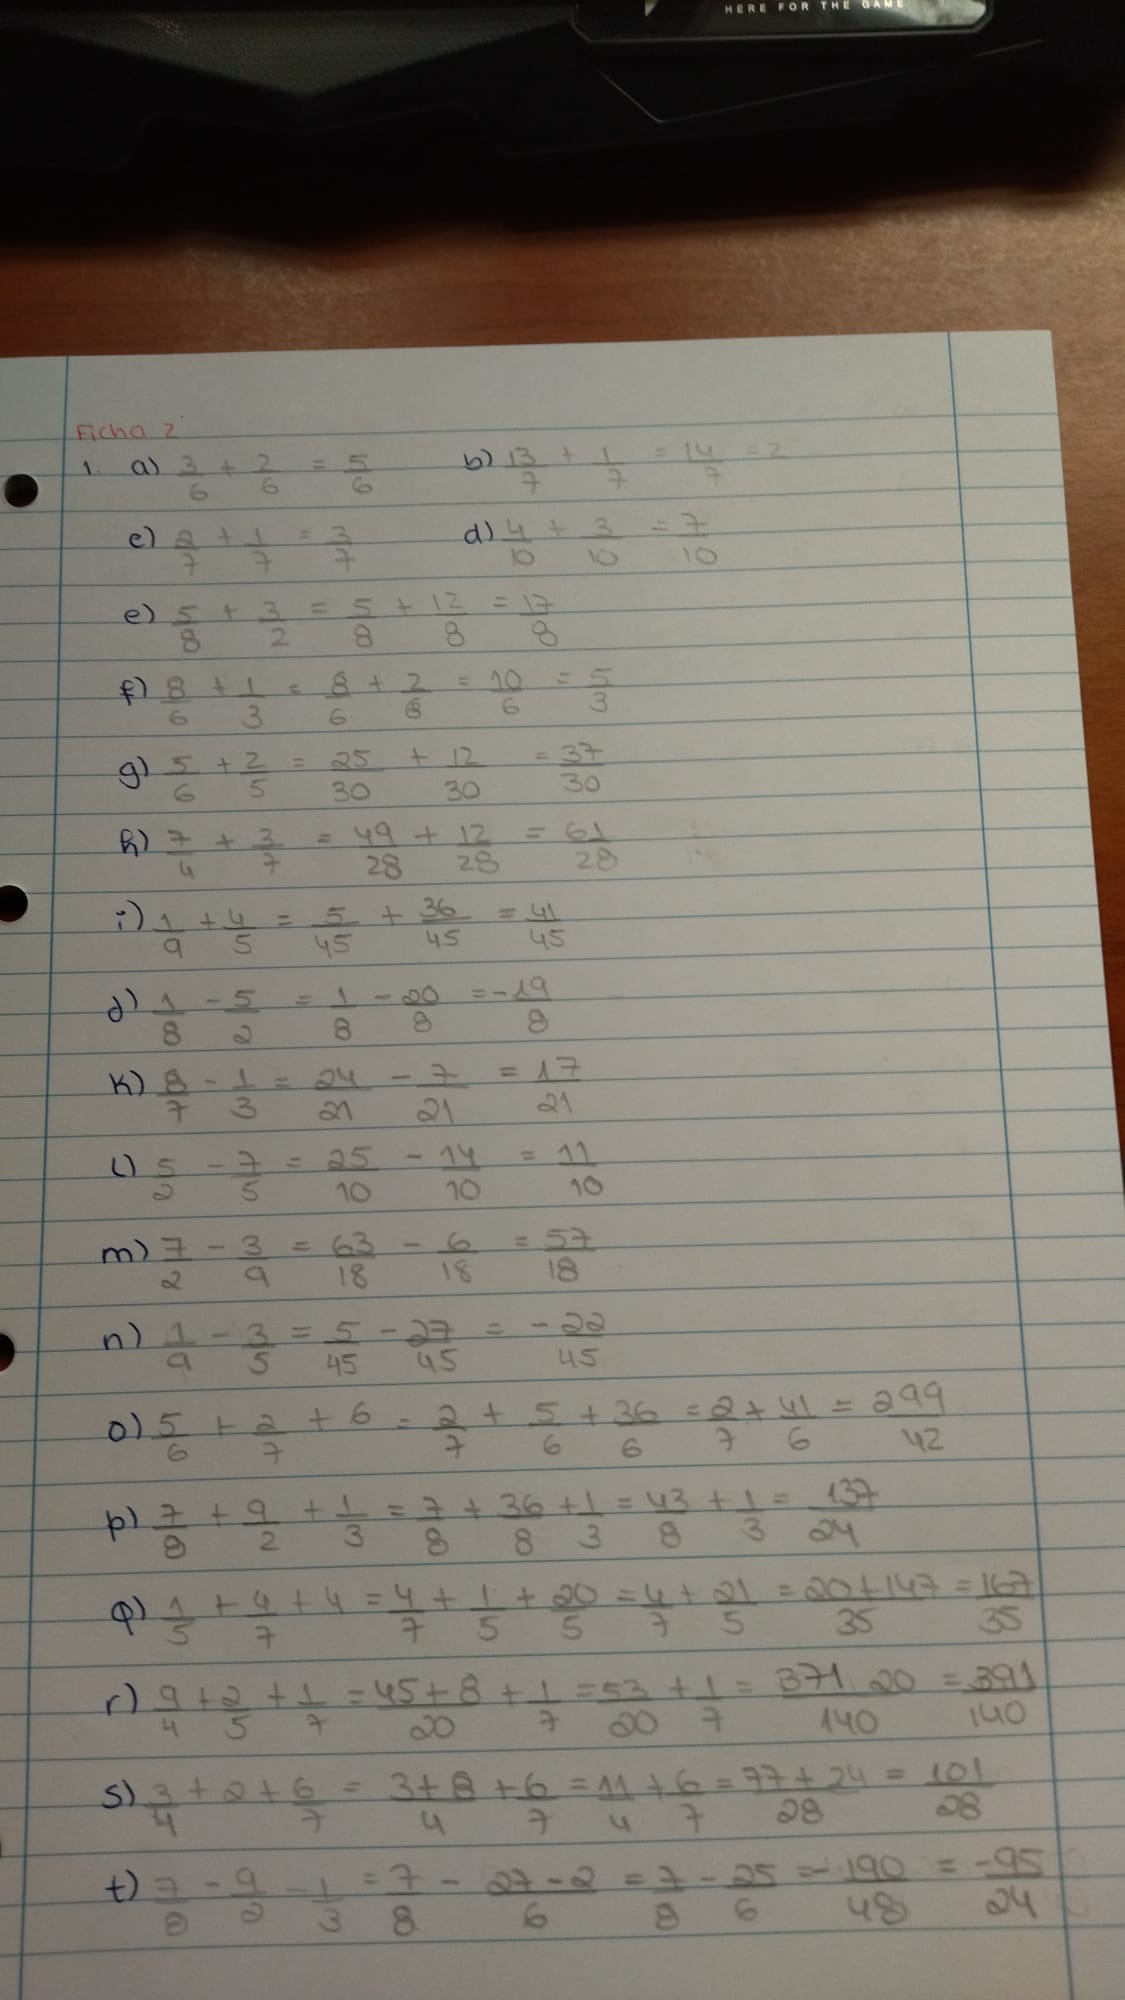 HERE FOR THE GAME
Ficha 2
1. a) 3/6 + 2/6 = 5/6 b) 13/7 + 1/7 = 14/7 = 2
c) 2/7 + 1/7 = 3/7 d) 4/10 + 3/10 = 7/10
e) 5/8 + 3/2 = 5/8 + 12/8 = 17/8
f) 8/6 + 1/3 = 8/6 + 2/6 = 10/6 = 5/3
g) 5/6 + 2/5 = 25/30 + 12/30 = 37/30
h) 7/4 + 3/7 = 49/28 + 12/28 = 61/28
i) 1/9 + 4/5 = 5/45 + 36/45 = 41/45
j) 1/8 - 5/2 = 1/8 - 20/8 = -19/8
k) 8/7 - 1/3 = 24/21 - 7/21 = 17/21
l) 5/2 - 7/5 = 25/10 - 14/10 = 11/10
m) 7/2 - 3/9 = 63/18 - 6/18 = 57/18
n) 1/9 - 3/5 = 5/45 - 27/45 = -22/45
o) 5/6 + 2/7 + 6 = 2/7 + 5/6 + 36/6 = 2/7 + 41/6 = 299/42
p) 7/8 + 9/2 + 1/3 = 7/8 + 36/8 + 1/3 = 43/8 + 1/3 = 137/24
q) 1/5 + 4/7 + 4 = 4/7 + 1/5 + 20/5 = 4/7 + 21/5 = 20+147/35 = 167/35
r) 9/4 + 2/5 + 1/7 = 45+8/20 + 1/7 = 53/20 + 1/7 = 371 20/140 = 391/140
s) 3/4 + 2 + 6/7 = 3+8/4 + 6/7 = 11/4 + 6/7 = 77+24/28 = 101/28
t) 7/8 - 9/2 - 1/3 = 7/8 - 27-2/6 = 7/8 - 25/6 = -190/48 = -95/24